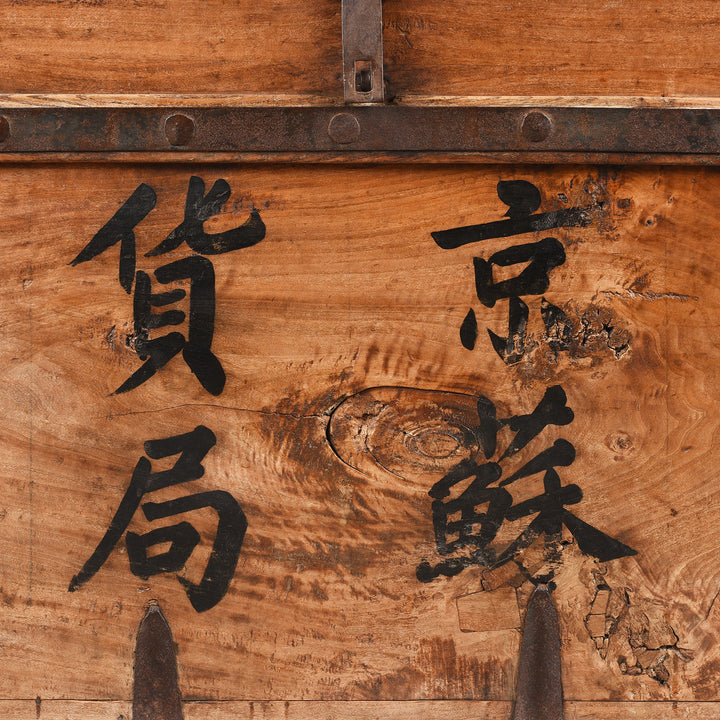 京蘇
貨局